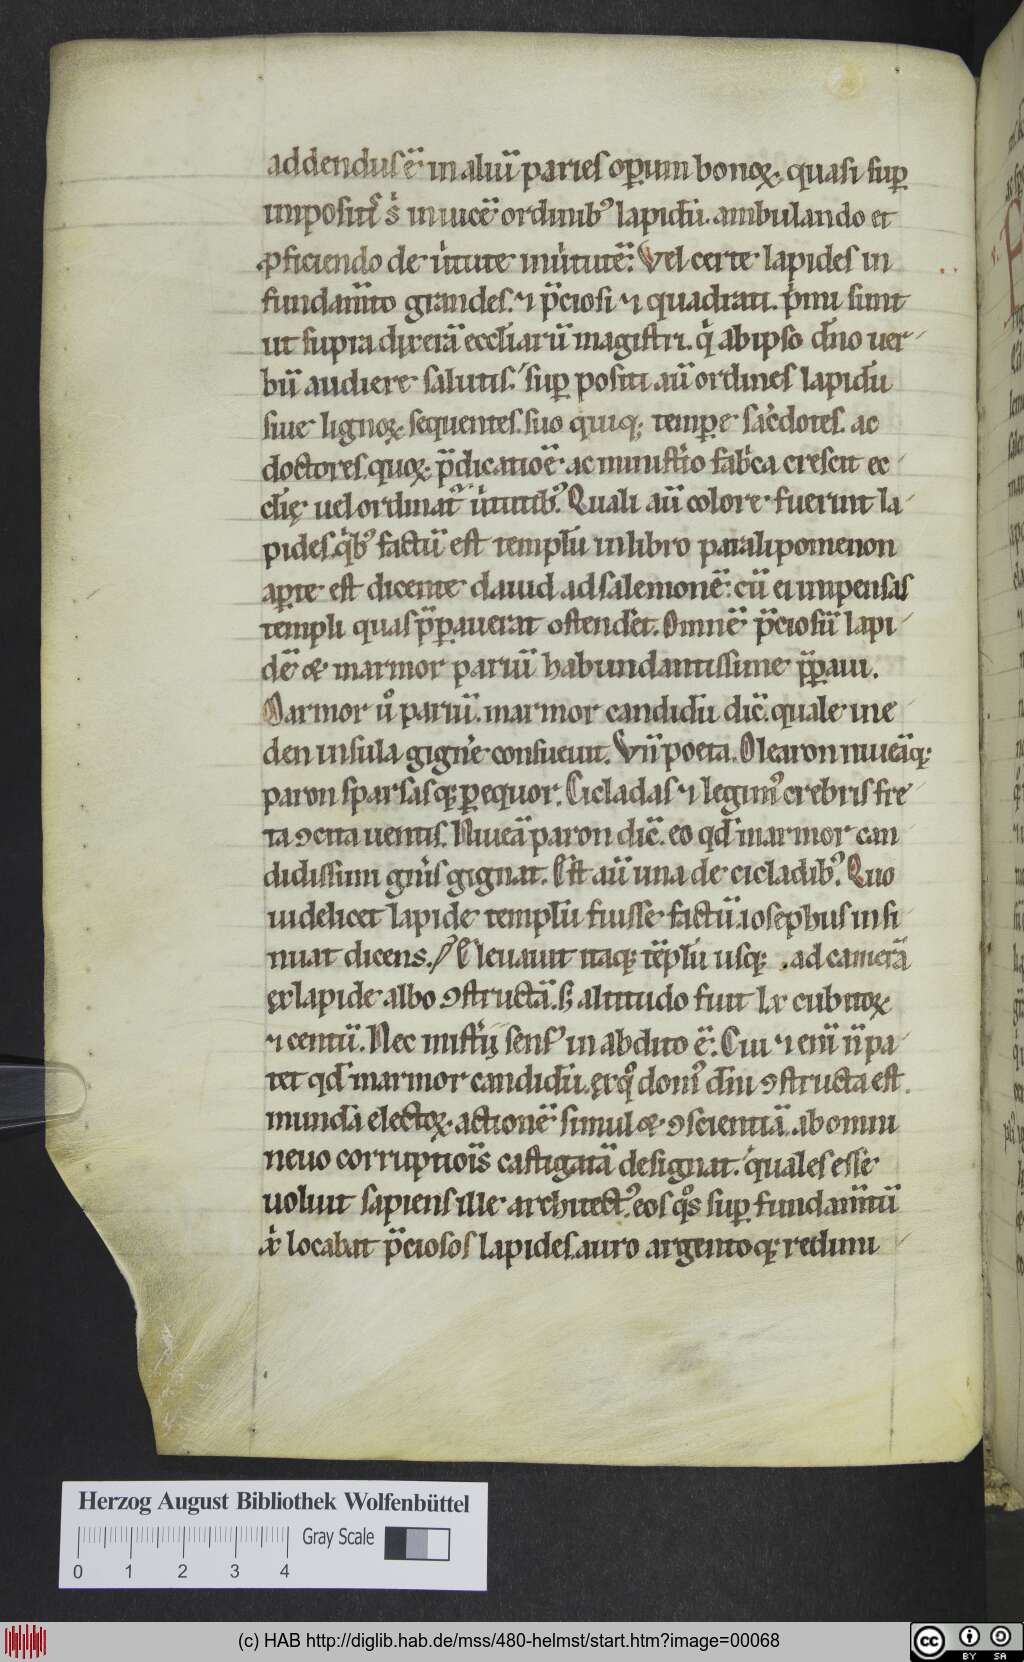 addendus ē in altū paries operum bonoꝝ, quasi suꝑ
impositꝰ ſ̄ inuicē ordinibꝰ lapidū. ambulando et
ꝓficiendo de uͥtute in uͥtutē. Vel certe lapides in
fundam̄to grandes. ⁊ p̄ciosi ⁊ quadrati. pͥmi sunt
ut supra dixerā eccl̄iarū magistri. qͥ ab ipso dn̄o uer
bū audiere salutis. suꝑ positi aū ordines lapidū
siue lignoꝝ sequentes. suo quiqꝫ tempere sac̄dotes. ac
doctores. quoꝝ p̄dicatiōe ac ministͥio fabͥca crescit ec
cl̄ię uel ordinat᷑ uͥtutibꝰ. Quali aū colore fuerint la
pides qͥbꝰ factū est templū in libro paralipomenon
aꝑte est dicente dauid ad salemonē: cū ei impensas
templi quas p̄ꝑauerat ostendet̄. Omnē p̄ciosū lapi
dē & marmor pariū habundantissime p̄ꝑaui.
Marmor uͦ pariū. marmor candidū dic̄. quale in e
den insula gignē̄ consueuit. Vn̄ poeta. Olearon niueāqꝫ
paron sparsasqꝫ ꝑ equor. Cicladas ⁊ legimꝰ crebris fre
ta ꝯcita uentis. Niueā paron dic̄. eo qd̄ marmor can
didissimi gn̄is gignat. Est aū una de cicladibꝰ. Quo
uidelicet lapide templū fuisse factū. iosephus insi
nuat dicens. Eleuauit itaqꝫ tēplū usqꝫ ad camerā
ex lapide albo ꝯstructā. ꝭ altitudo fuit lx cubitoꝝ
⁊ centū. Nec mistͥij sensꝰ in abdito ē. Cui ⁊ eni n̄ pa
tet qd̄ marmor candidū. ex qͦ domꝰ dn̄i ꝯstructa est.
mundā electoꝝ actionē simul & ꝯscientiā. ab omni
neuo corruptiōis castigatā designat. quales esse
uoluit sapiens ille architectꝰ. eos qͦs suꝑ fundam̄tū
xͥ locabat p̄ciosos lapides. auro argentoqꝫ redimi
Herzog August Bibliothek Wolfenbüttel
Gray Scale
0 1 2 3 4
(c) HAB http://diglib.hab.de/mss/480-helmst/start.htm?image=00068
cc BY SA